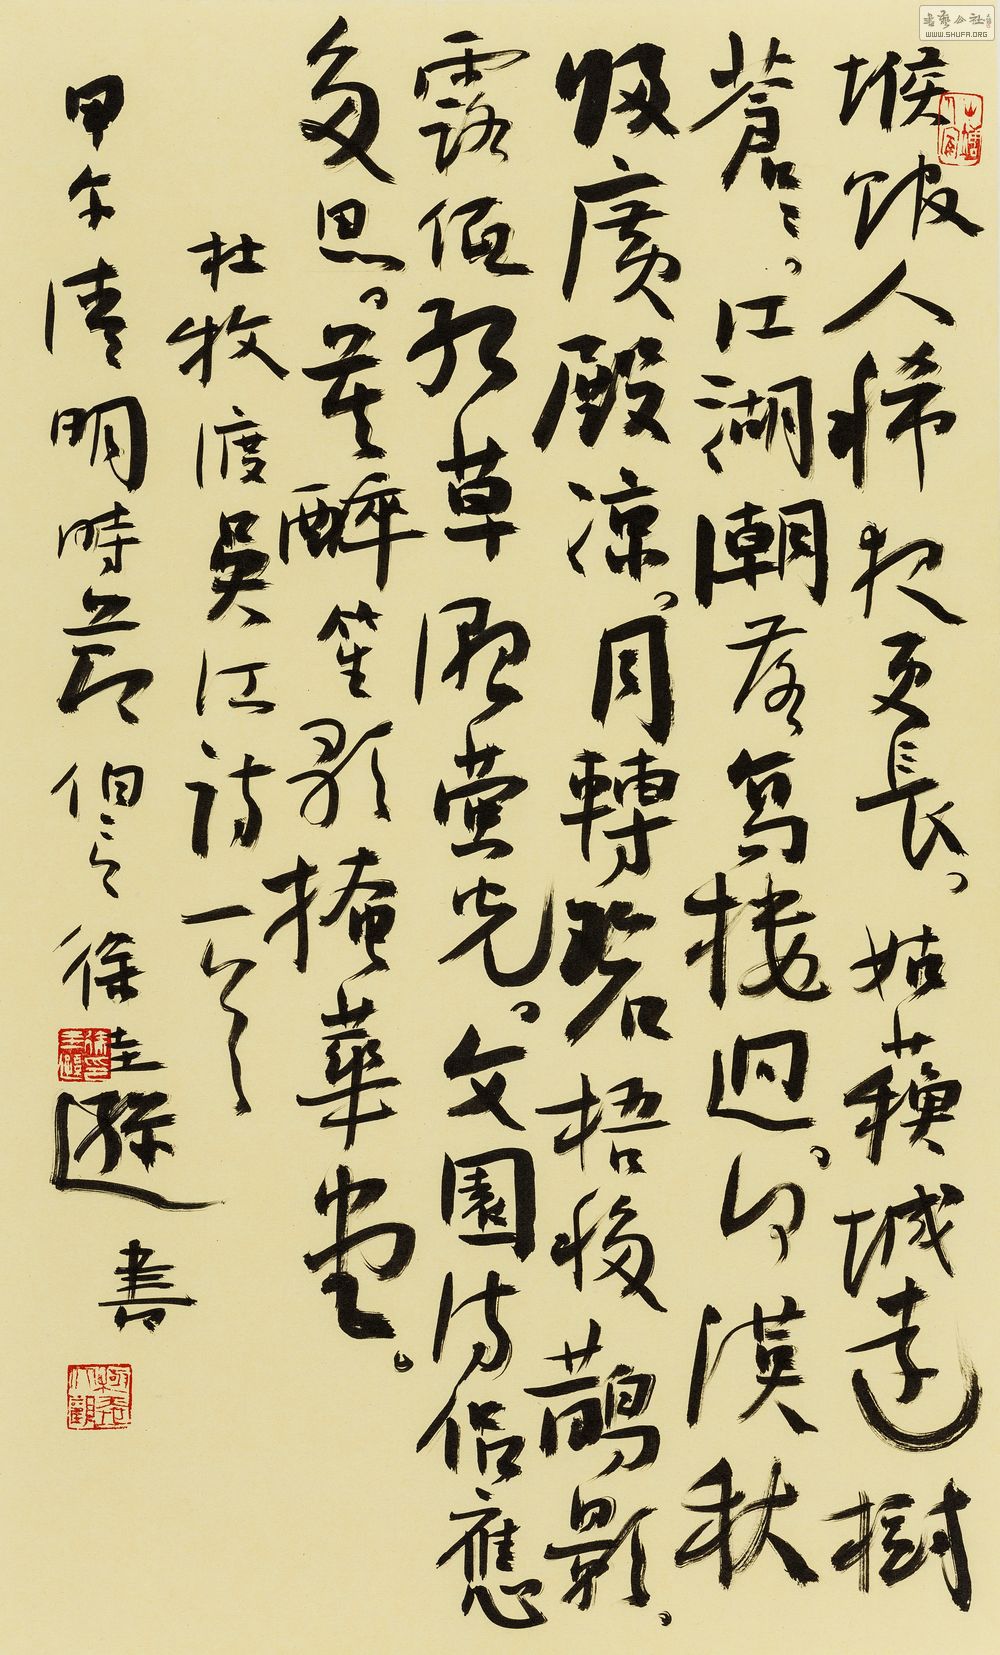 書藝公社
WWW.SHUFA.ORG
堠館人稀夜更長。姑蘇城遠樹
蒼〻。江湖潮落高樓迥。河漢秋
歸廣殿涼。月轉碧梧移鵲影。
露低紅草濕螢光。文園詩侶應
多思。莫醉笙歌掩華堂。
杜牧渡吳江詩一首
甲午清明時節徐圭遜書